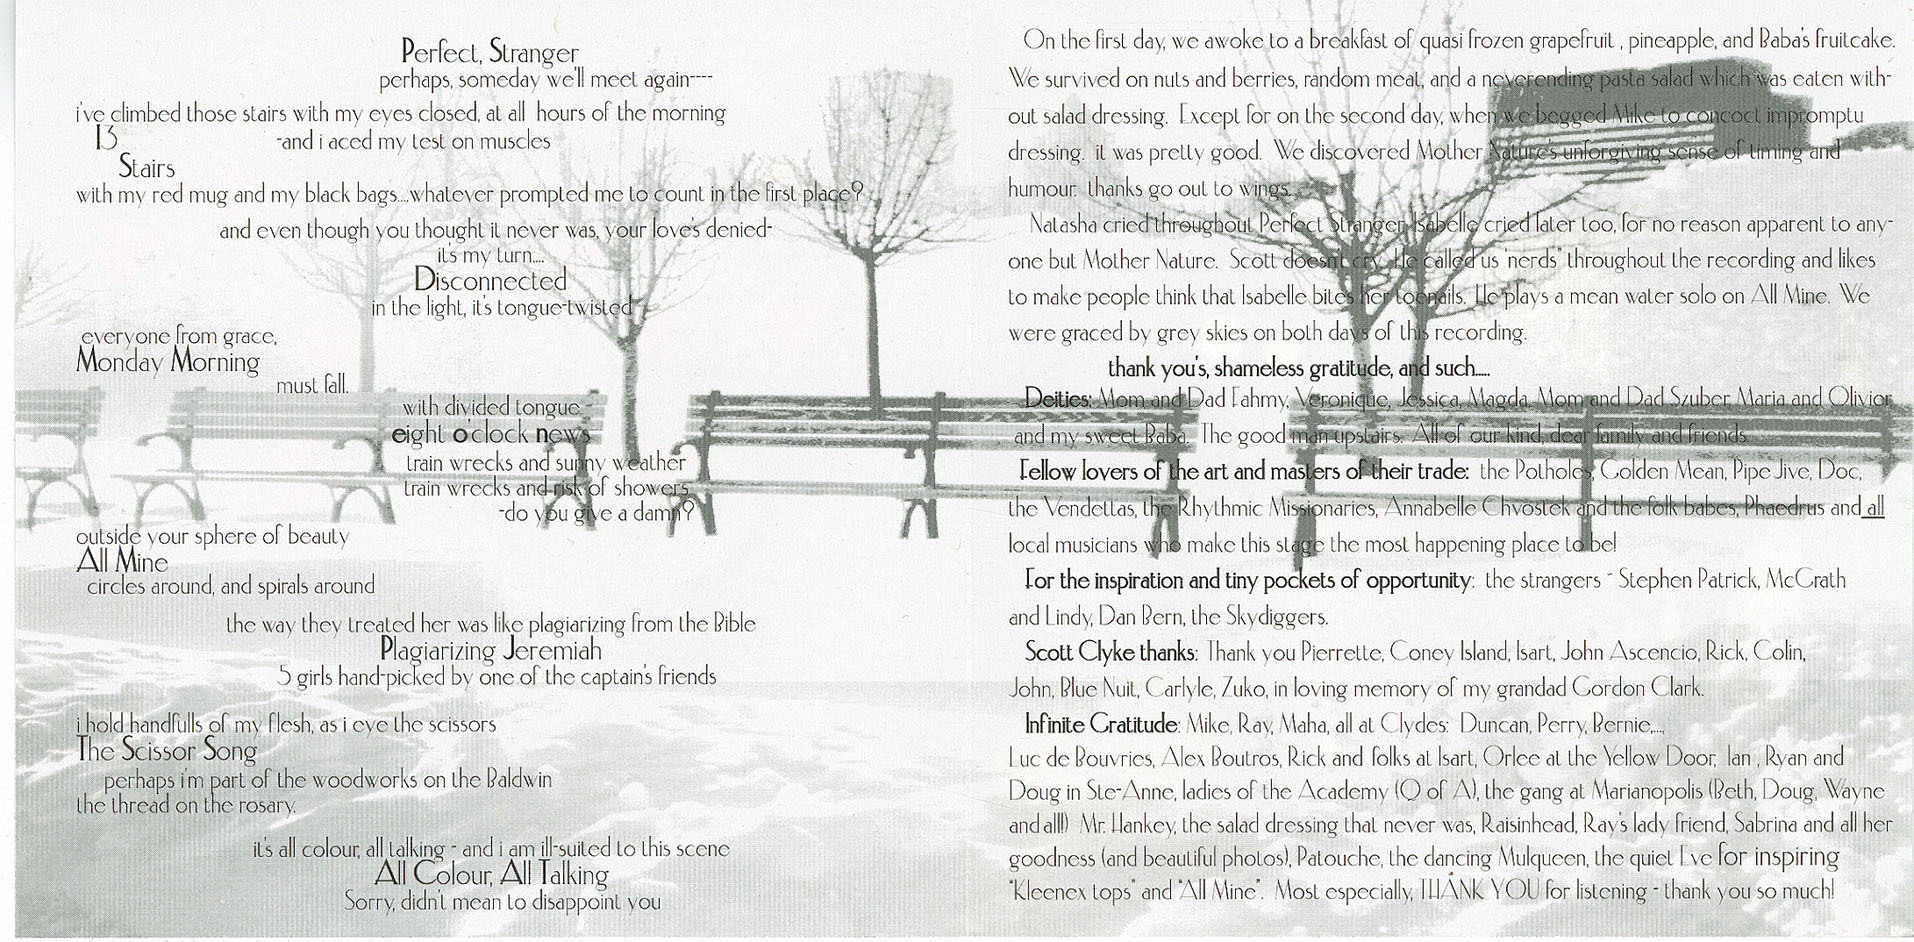 Perfect, Stranger
perhaps, someday we'll meet again----
i've climbed those stairs with my eyes closed, at all hours of the morning
13
-and i aced my test on muscles
Stairs
with my red mug and my black bags....whatever prompted me to count in the first place?
and even though you thought it never was, your love's denied-
it's my turn....
Disconnected
in the light, it's tongue-twisted
everyone from grace,
Monday Morning
must fall.
with divided tongue
eight o'clock news
train wrecks and sunny weather
train wrecks and risk of showers
-do you give a damn?
outside your sphere of beauty
All Mine
circles around, and spirals around
the way they treated her was like plagiarizing from the Bible
Plagiarizing Jeremiah
5 girls hand-picked by one of the captain's friends
i hold handfulls of my flesh, as i eye the scissors
The Scissor Song
perhaps i'm part of the woodworks on the Baldwin
the thread on the rosary.
it's all colour, all talking - and i am ill-suited to this scene
All Colour, All Talking
Sorry, didn't mean to disappoint you
On the first day, we awoke to a breakfast of quasi frozen grapefruit , pineapple, and Baba's fruitcake.
We survived on nuts and berries, random meat, and a neverending pasta salad which was eaten with-
out salad dressing. Except for on the second day, when we begged Mike to concoct impromptu
dressing. it was pretty good. We discovered Mother Nature's unforgiving sense of timing and
humour. thanks go out to wings.
Natasha cried throughout Perfect Stranger, Isabelle cried later too, for no reason apparent to any-
one but Mother Nature. Scott doesn't cry. He called us "nerds" throughout the recording and likes
to make people think that Isabelle bites her toenails. He plays a mean water solo on All Mine. We
were graced by grey skies on both days of this recording.
thank you's, shameless gratitude, and such....
Deities: Mom and Dad Fahmy, Veronique, Jessica, Magda, Mom and Dad Szuber, Maria and Olivier,
and my sweet Baba. The good man upstairs. All of our kind, dear family and friends.
Fellow lovers of the art and masters of their trade: the Potholes, Golden Mean, Pipe Jive, Doc,
the Vendettas, the Rhythmic Missionaries, Annabelle Chvostek and the folk babes, Phaedrus and all
local musicians who make this stage the most happening place to be!
For the inspiration and tiny pockets of opportunity: the strangers - Stephen Patrick, McGrath
and Lindy, Dan Bern, the Skydiggers.
Scott Clyke thanks: Thank you Pierrette, Coney Island, Isart, John Ascencio, Rick, Colin,
John, Blue Nuit, Carlyle, Zuko, in loving memory of my grandad Gordon Clark.
Infinite Gratitude: Mike, Ray, Maha, all at Clydes: Duncan, Perry, Bernie,...,
Luc de Bouvries, Alex Boutros, Rick and folks at Isart, Orlee at the Yellow Door, Ian , Ryan and
Doug in Ste-Anne, ladies of the Academy (Q of A), the gang at Marianopolis (Beth, Doug, Wayne
and all!!) Mr. Hankey, the salad dressing that never was, Raisinhead, Ray's lady friend, Sabrina and all her
goodness (and beautiful photos), Patouche, the dancing Mulqueen, the quiet Eve for inspiring
"Kleenex tops" and "All Mine". Most especially, THANK YOU for listening - thank you so much!